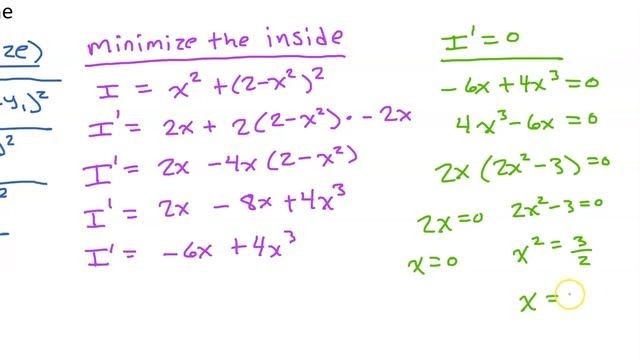 ne
ze)
-y₁)²
)²
2
minimize the inside
I = x² + (2-x²)²
I' = 2x + 2(2-x²) · -2x
I' = 2x - 4x(2-x²)
I' = 2x - 8x + 4x³
I' = -6x + 4x³
I' = 0
-6x + 4x³ = 0
4x³ - 6x = 0
2x(2x² - 3) = 0
2x = 0 2x² - 3 = 0
x = 0 x² = 3/2
x =